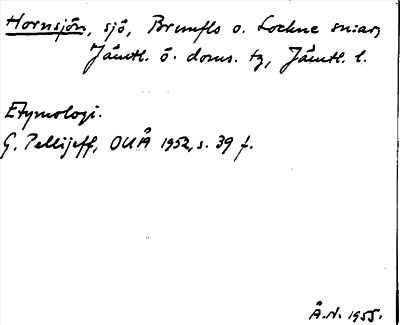 Hornsjön, sjö, Brunflo o. Lockne snr,
Jämtl. ö. doms. tg, Jämtl. l.
Etymologi.
G. Pellijeff, OUÅ 1952, s. 39 f.
Å.N. 1955.